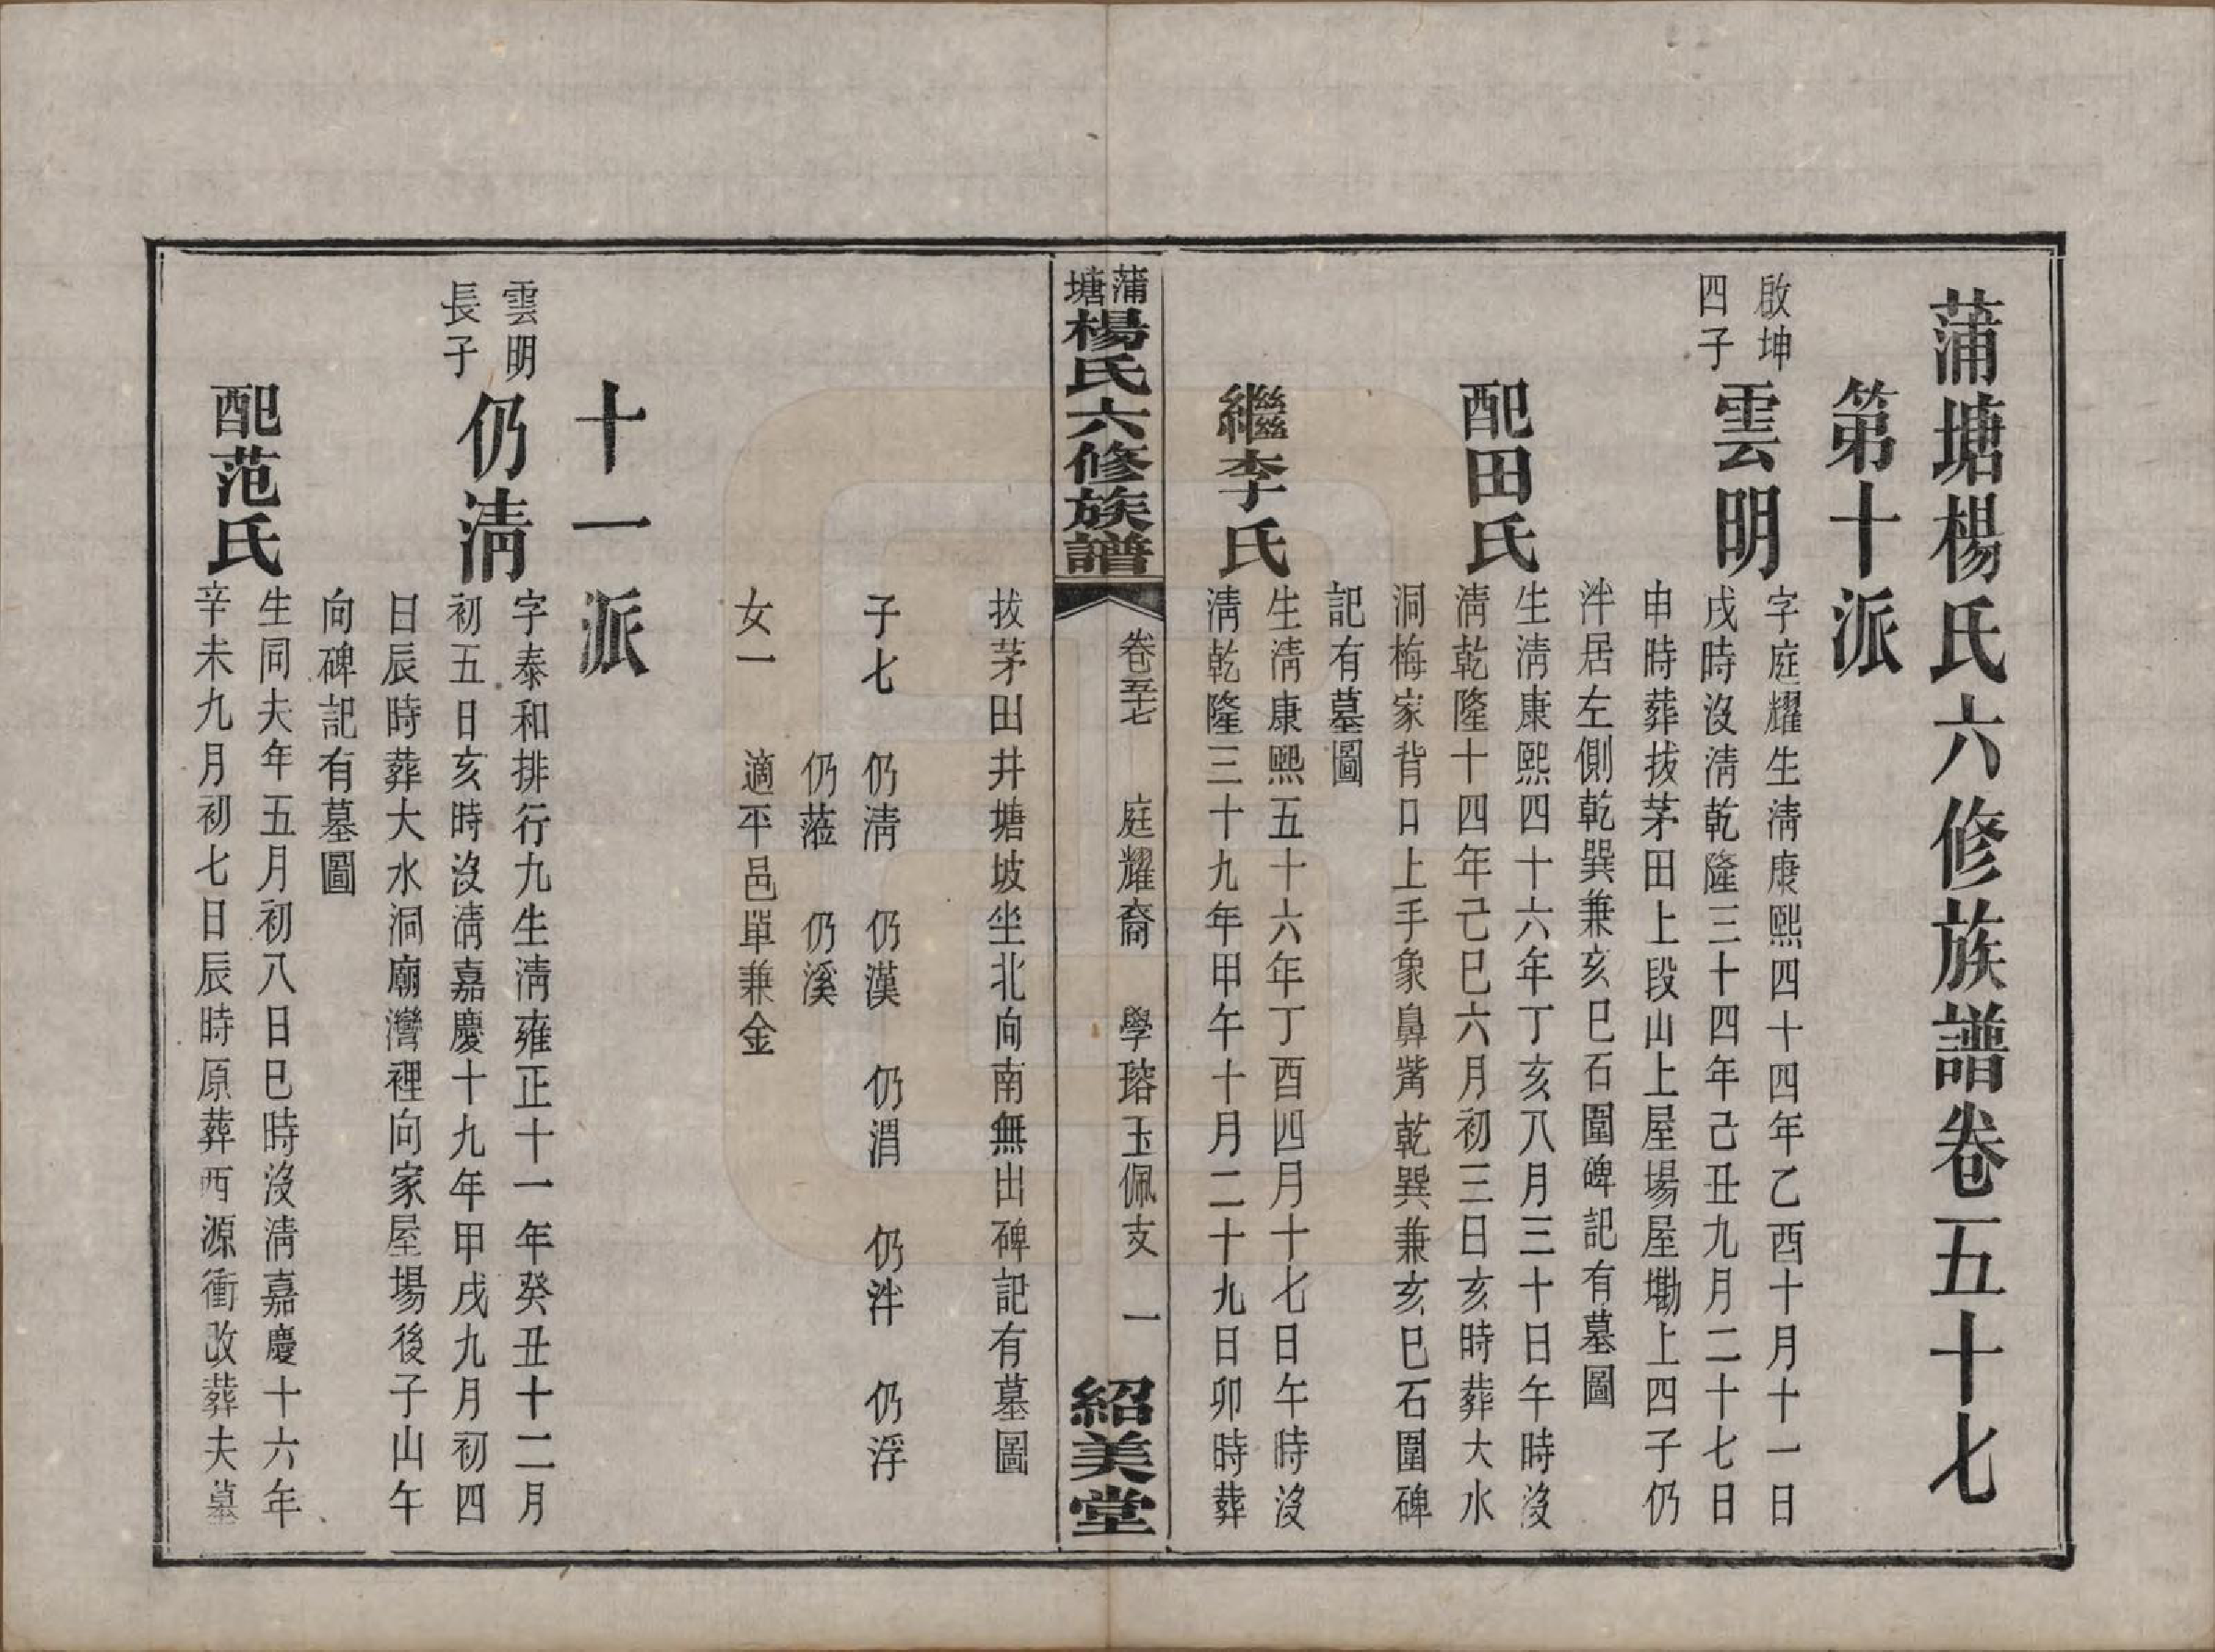 蒲塘楊氏六修族譜卷五十七
第十派
啟坤
四子
雲明
字庭耀生淸康熙四十四年乙酉十月十一日
戌時沒淸乾隆三十四年己丑九月二十七日
申時葬拔茅田上段山上屋場屋墈上四子仍
泮居左側乾巽兼亥巳石圍碑記有墓圖
配田氏
生淸康熙四十六年丁亥八月三十日午時沒
淸乾隆十四年己巳六月初三日亥時葬大水
洞梅家背口上手象鼻嘴乾巽兼亥巳石圍碑
記有墓圖
繼李氏
生淸康熙五十六年丁酉四月十七日午時沒
淸乾隆三十九年甲午十月二十九日卯時葬
蒲塘楊氏六修族譜
卷五十七 庭耀裔 學瑢玉佩支 一
紹美堂
拔茅田井塘坡坐北向南無出碑記有墓圖
子七 仍淸 仍漢 仍渭 仍泮 仍浮
仍蒞 仍溪
女一 適平邑單兼金
十一派
雲明
長子
仍淸
字泰和排行九生淸雍正十一年癸丑十二月
初五日亥時沒淸嘉慶十九年甲戌九月初四
日辰時葬大水洞廟灣裡向家屋場後子山午
向碑記有墓圖
配范氏
生同夫年五月初八日巳時沒淸嘉慶十六年
辛未九月初七日辰時原葬西源衝改葬夫墓